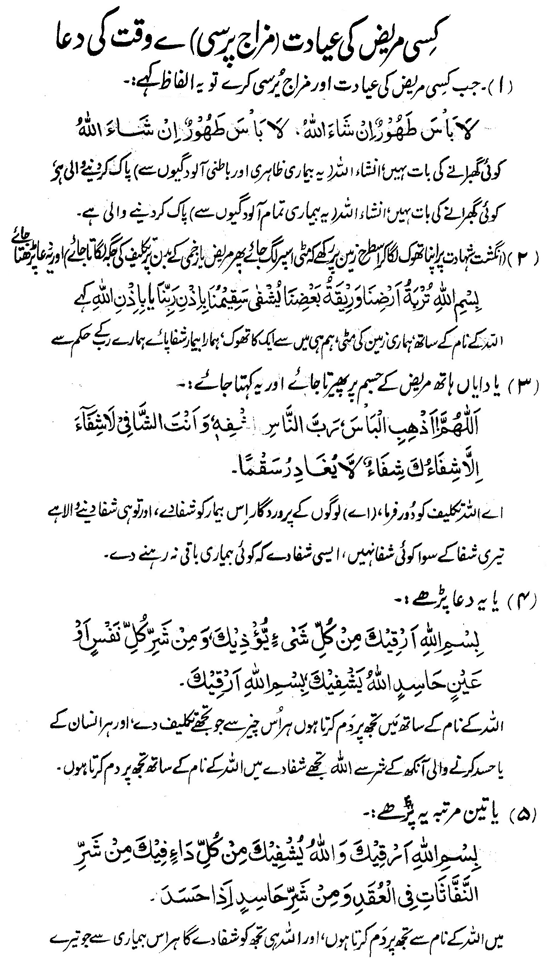 کسی مریض کی عیادت (مزاج پرسی) کے وقت کی دعا
(۱)۔ جب کسی مریض کی عیادت اور مزاج پُرسی کرے تو یہ الفاظ کہے:۔
لَا بَأْسَ طَهُوْرٌ اِنْ شَاءَ اللهُ، لَا بَأْسَ طَهُوْرٌ اِنْ شَاءَ اللهُ
کوئی گھبرانے کی بات نہیں، انشاء اللہ (یہ بیماری ظاہری اور باطنی آلودگیوں سے) پاک کر دینے والی ہے
کوئی گھبرانے کی بات نہیں، انشاء اللہ (یہ بیماری تمام آلودگیوں سے) پاک کر دینے والی ہے۔
(۲) (انگشت شہادت پر اپنا تھوک لگا کر اسطرح زمین پر رکھے کہ مٹی اسپر لگ جائے پھر مریض یا زخمی کے بدن پر تکلیف کی جگہ لگاتا جائے) اور یہ دعا پڑھتا جائے
بِسْمِ اللهِ تُرْبَةُ اَرْضِنَا وَرِيْقَةُ بَعْضِنَا يُشْفٰى سَقِيْمُنَا بِاِذْنِ رَبِّنَا یا بِاِذْنِ اللهِ کہے
اللہ کے نام کے ساتھ ہماری زمین کی مٹی، ہم ہی میں سے ایک کا تھوک، ہمارا بیمار شفا پائے ہمارے رب کے حکم سے
(۳) یا دایاں ہاتھ مریض کے جسم پر پھیرتا جائے اور یہ کہتا جائے:۔
اَللّٰهُمَّ اَذْهِبِ الْبَاْسَ رَبَّ النَّاسِ اشْفِهٖ وَاَنْتَ الشَّافِيْ لَا شِفَآءَ
اِلَّا شِفَاءُكَ شِفَاءً لَّا يُغَادِرُ سَقْمًا۔
اے اللہ تکلیف کو دُور فرما، (اے) لوگوں کے پروردگار اِس بیمار کو شفا دے، اور تو ہی شفا دینے والا ہے
تیری شفا کے سوا کوئی شفا نہیں، ایسی شفا دے کہ کوئی بیماری باقی نہ رہنے دے۔
(۴) یا یہ دعا پڑھے:۔
بِسْمِ اللهِ اَرْقِيْكَ مِنْ كُلِّ شَیْءٍ يُّؤْذِيْكَ وَمِنْ شَرِّ كُلِّ نَفْسٍ اَوْ
عَيْنٍ حَاسِدٍ اللهُ يَشْفِيْكَ بِسْمِ اللهِ اَرْقِيْكَ۔
اللہ کے نام کے ساتھ میں تجھ پر دَم کرتا ہوں ہر اُس چیز سے جو تجھے تکلیف دے، اور ہر انسان کے
یا حسد کرنے والی آنکھ کے شر سے اللہ تجھے شفا دے میں اللہ کے نام کے ساتھ تجھ پر دم کرتا ہوں۔
(۵) یا تین مرتبہ یہ پڑھے:۔
بِسْمِ اللهِ اَرْقِيْكَ وَاللهُ يُشْفِيْكَ مِنْ كُلِّ دَاءٍ فِيْكَ مِنْ شَرِّ
النَّفَّاثَاتِ فِی الْعُقَدِ وَمِنْ شَرِّ حَاسِدٍ اِذَا حَسَدَ۔
میں اللہ کے نام سے تجھ پر دَم کرتا ہوں، اور اللہ ہی تجھ کو شفا دے گا ہر اُس بیماری سے جو تیرے